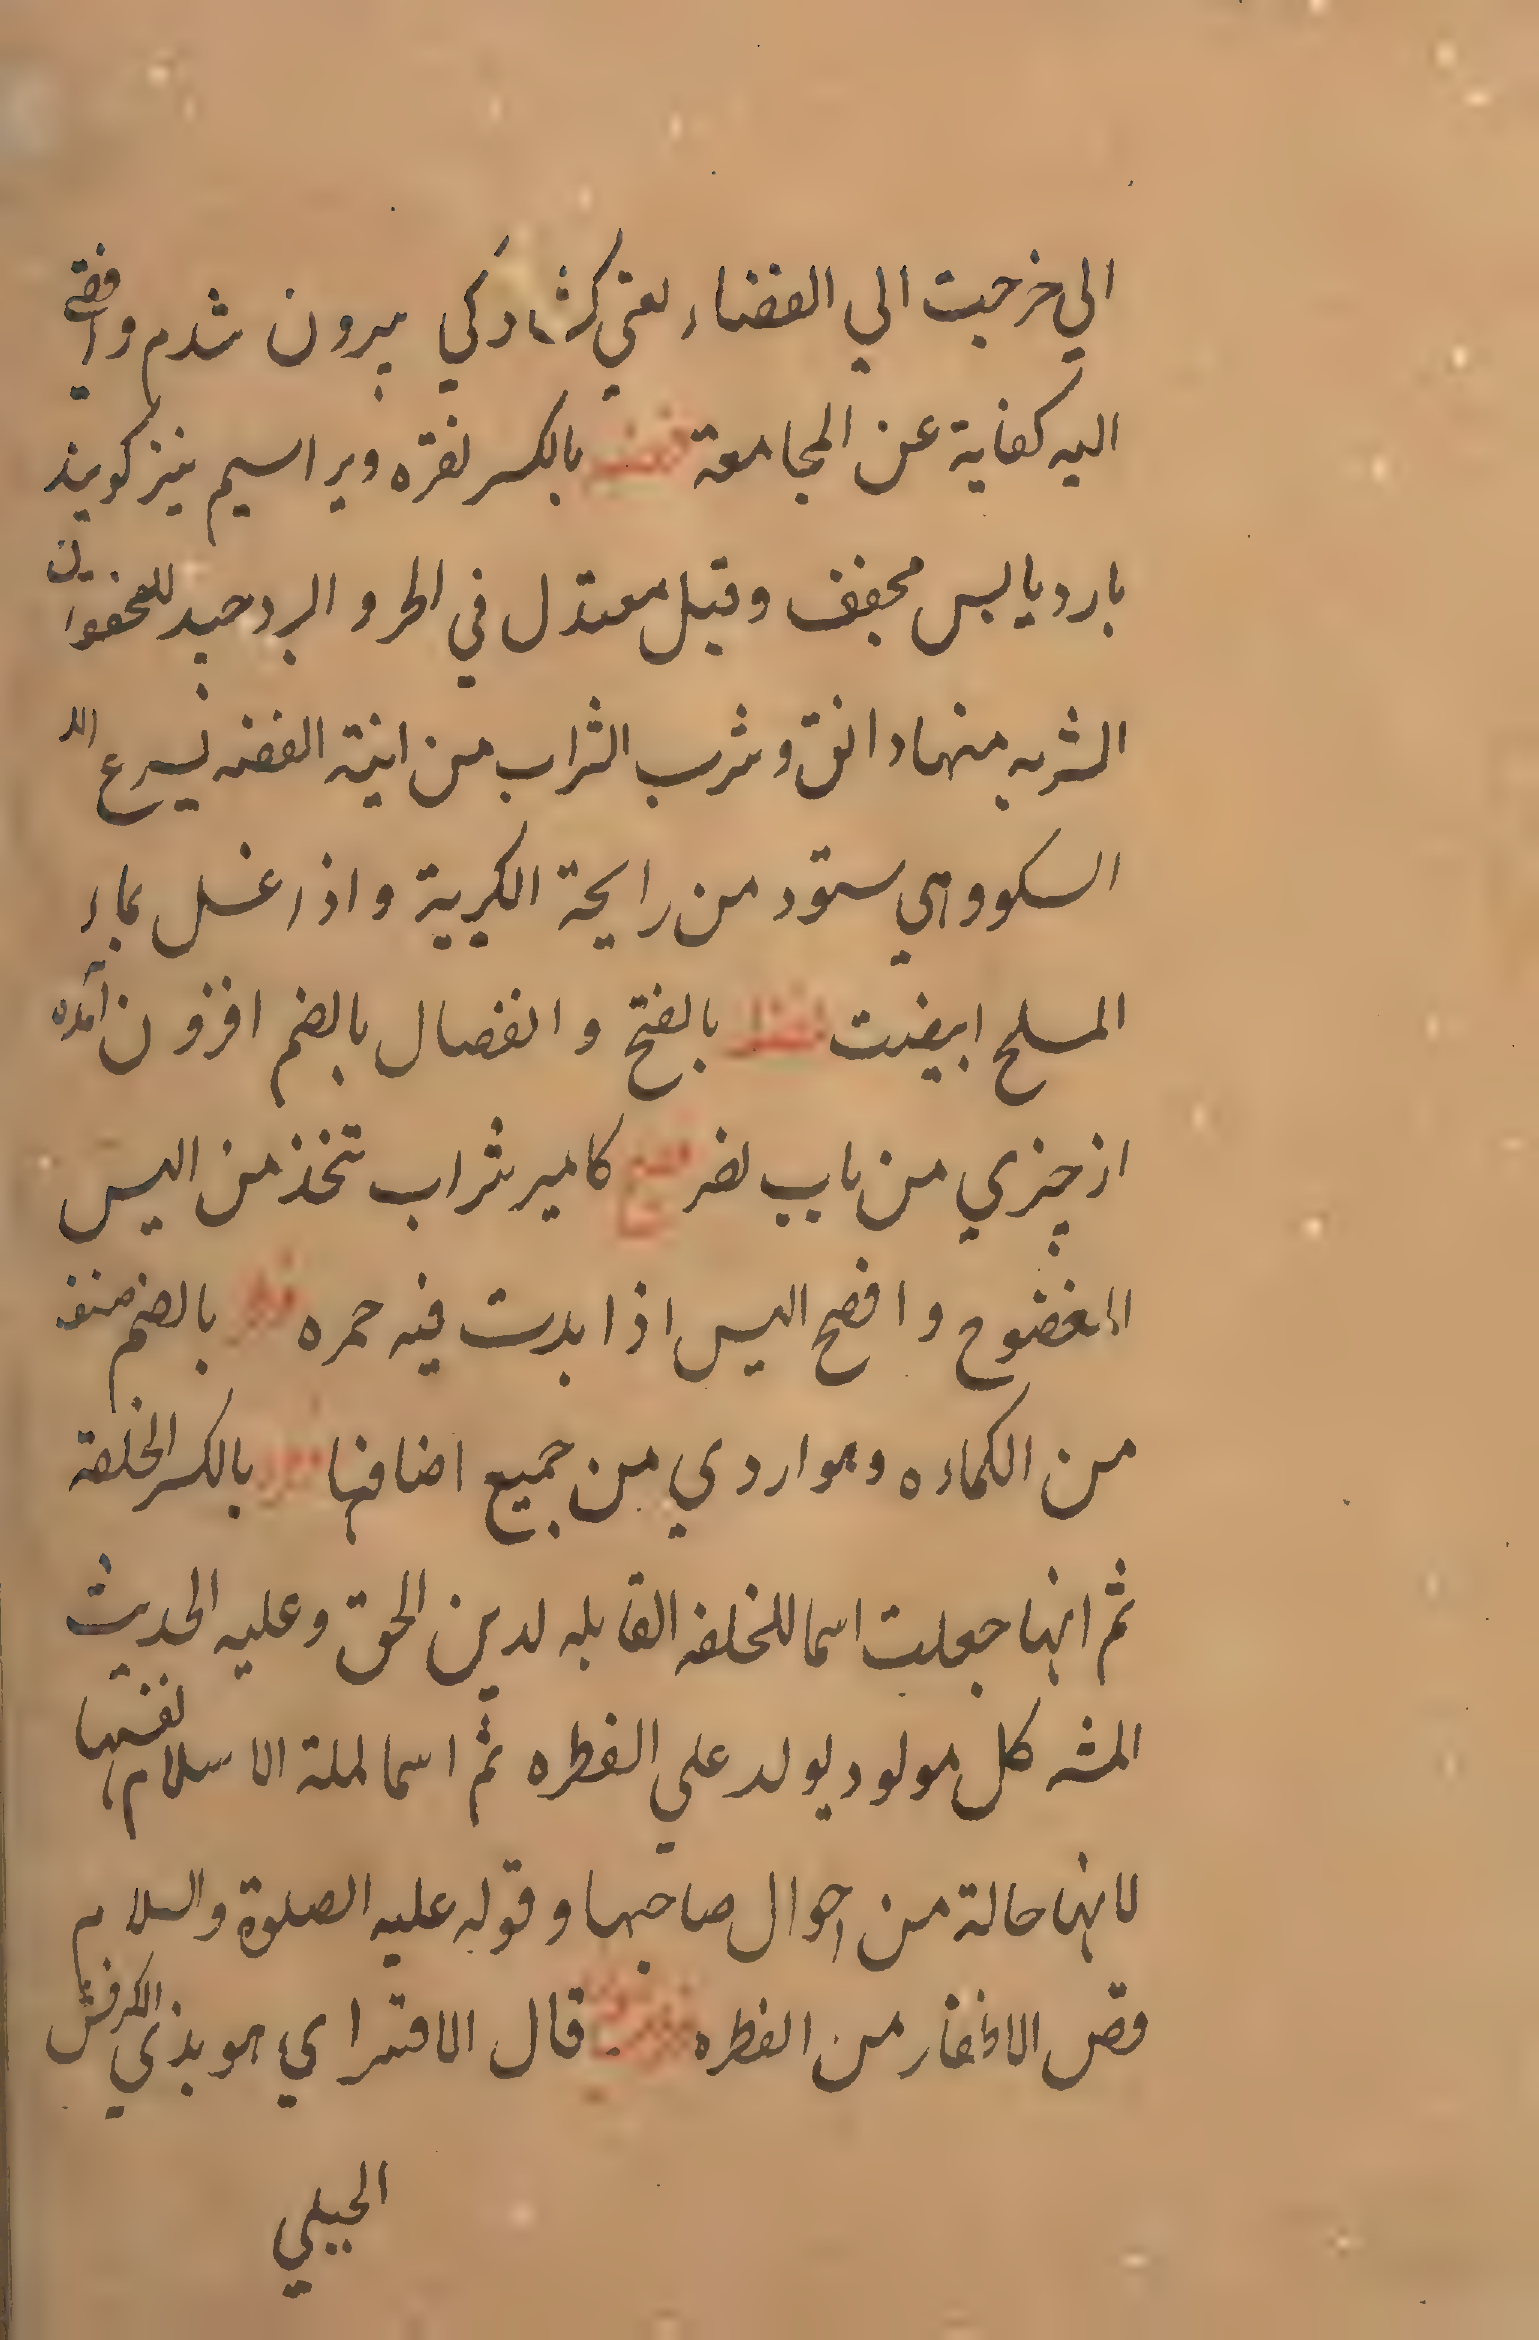 الي خرجت الي الفضاء لعني كشادكي بيرون شدم وافضي
اليه كفاية عن المجامعة فضه بالكسر نقره ويرا سيم نيز كويند
بارد يابس مجفف وقيل معتدل في الحر و البرد جيد للخفقان
الشربه منها دانق و شرب الشراب من انية الفضه يسرع الد
السكر وهي ستود من رايحة الكريية و اذا غسل بماء
الملح ابيضت فضل بالفتح و انفصال بالضم افزون آمده
از چيزي من باب نصر فضيح كامير شراب تتخذ من البسر
المفضوح و افضح البسر اذا بدت فيه حمره فطر بالضم صنف
من الكماءه وهو اردي من جميع اضافها فطره بالكسر الخلقة
ثم انها جعلت اسما للخلقه القابله لدين الحق و عليه الحديث
المشه كل مولود يولد علي الفطره ثم اسما لملة الاسلام نفسها
لانها حالة من احوال صاحبها و قوله عليه الصلوة والسلام
وقص الاظفار من الفطره قال الاقسراي هو بذي الكرفس
الجبلي